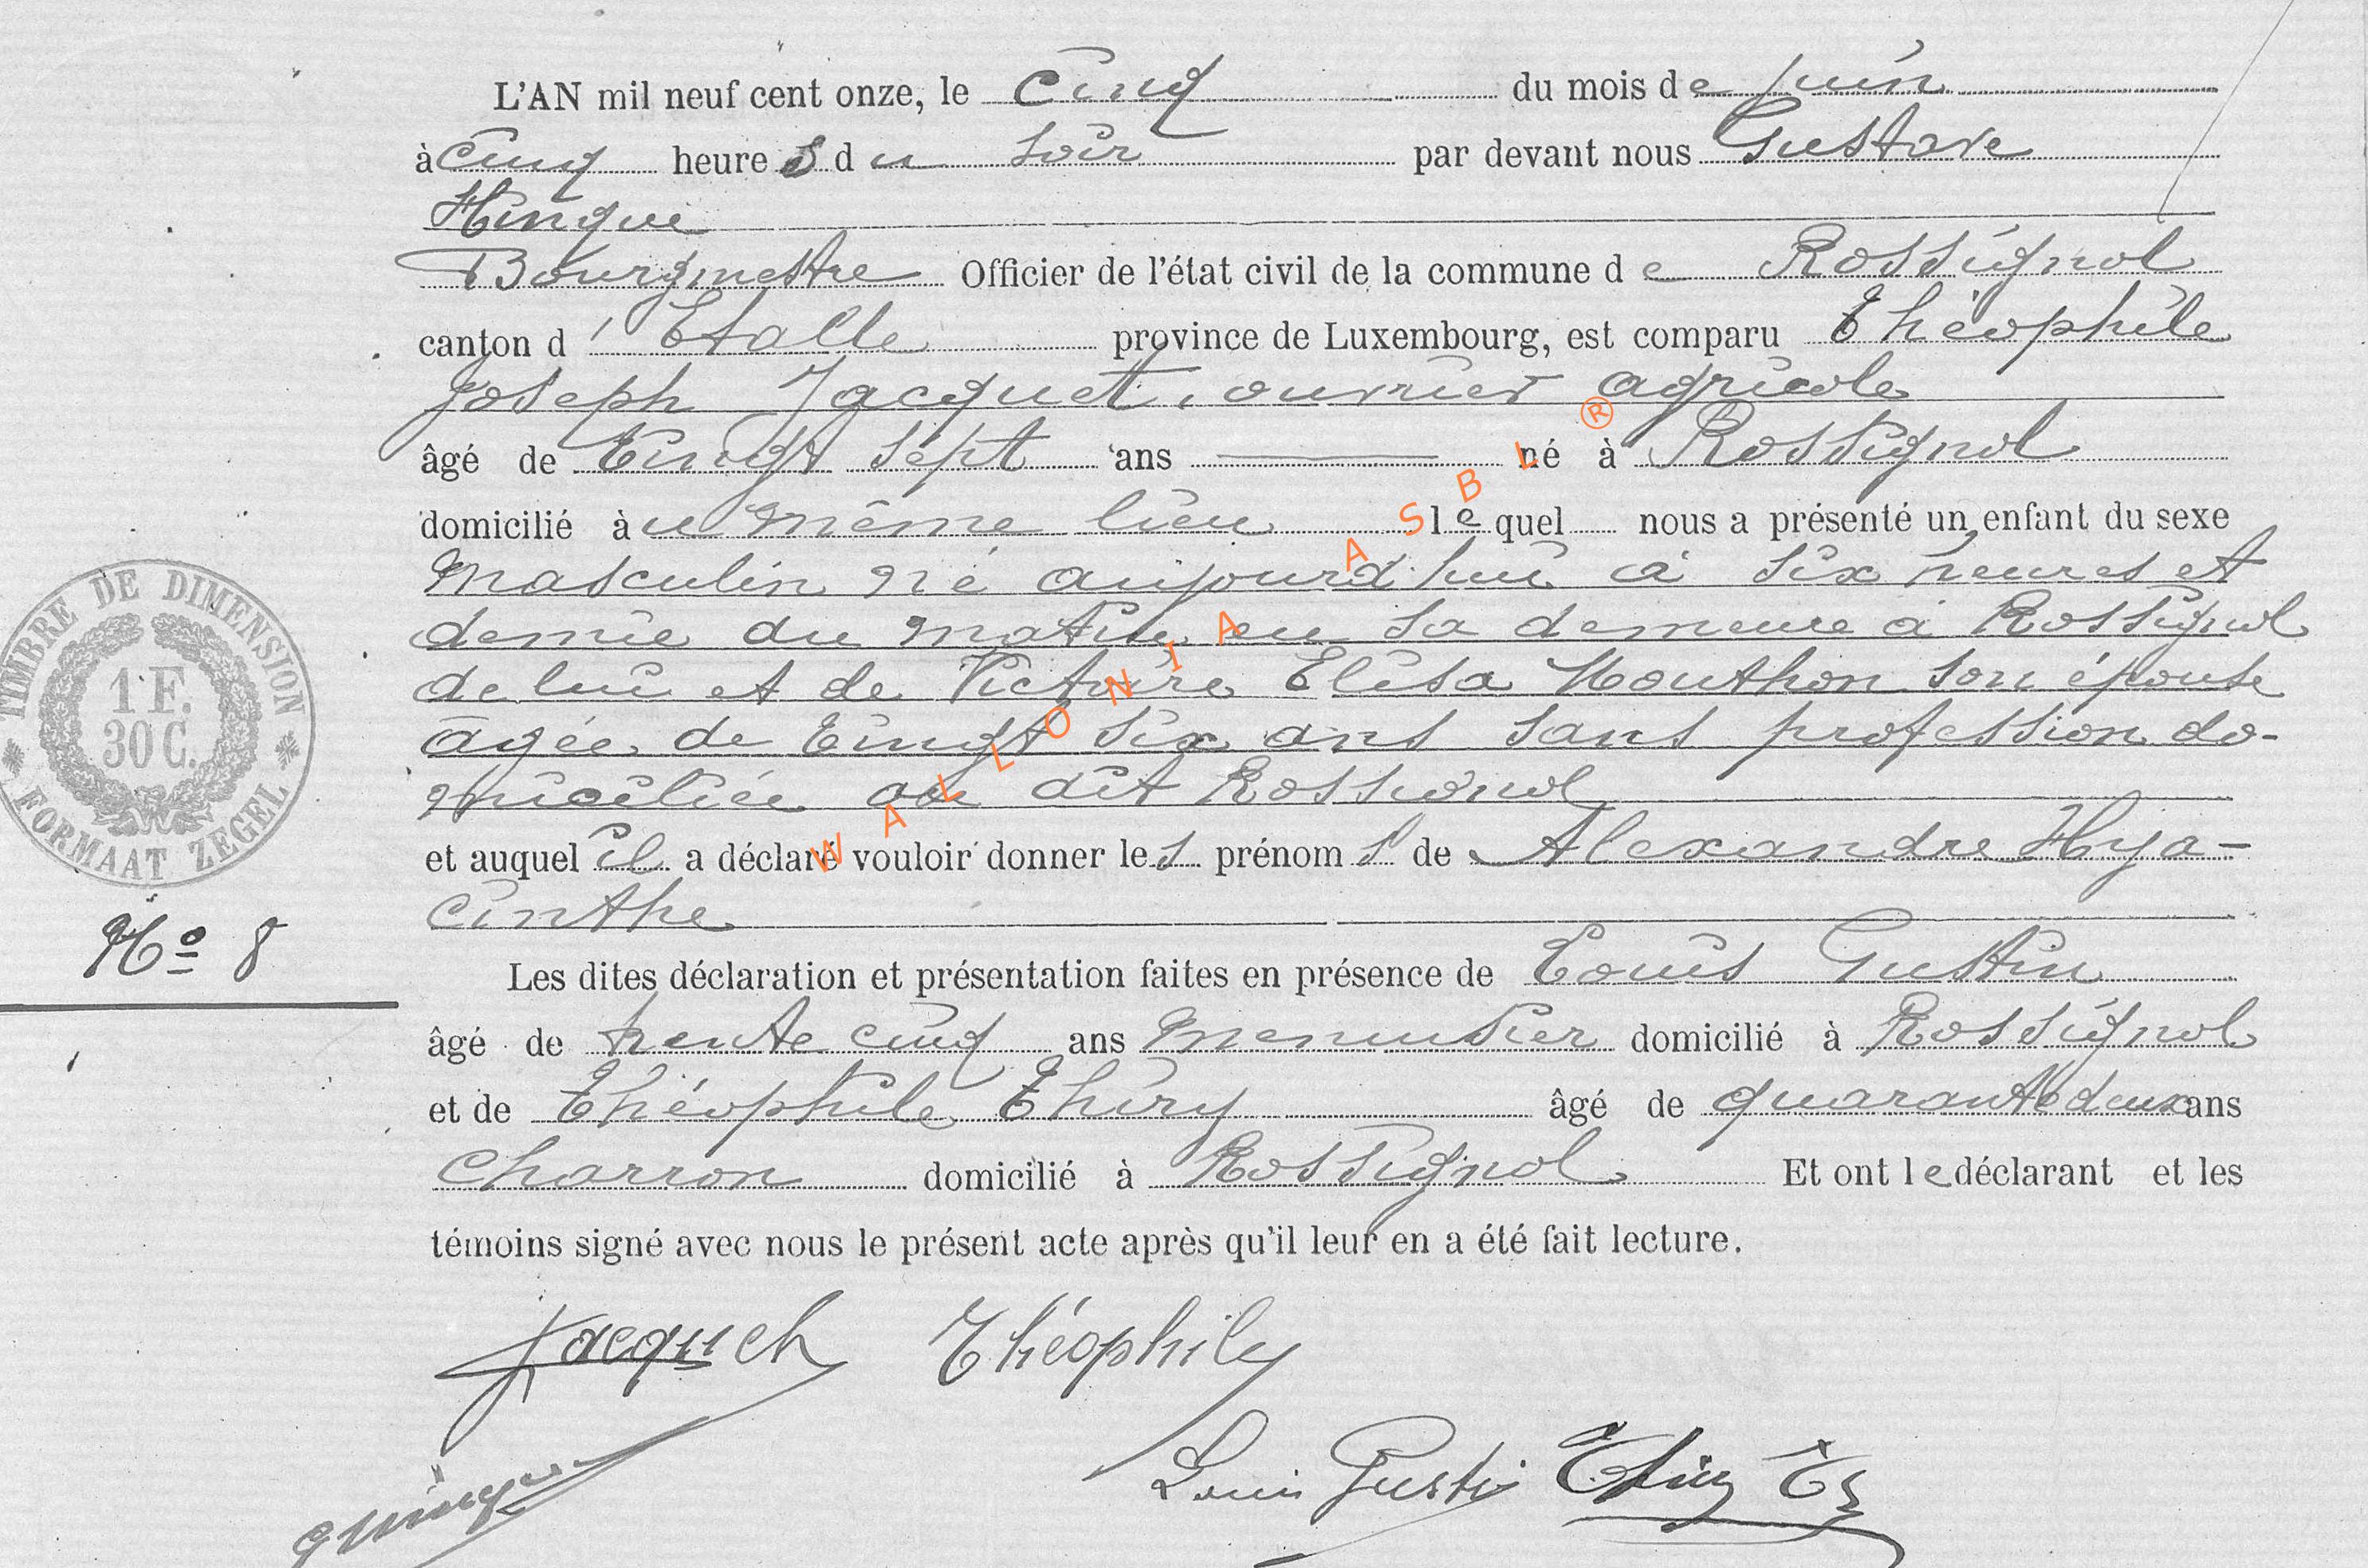 L'AN mil neuf cent onze, le cinq du mois de juin
à cinq heures du soir par devant nous Gustave
Hinque
Bourgmestre Officier de l'état civil de la commune de Rossignol
canton d'Etalle province de Luxembourg, est comparu Théophile
Joseph Jacquet, ouvrier agricole
âgé de vingt sept ans né à Rossignol
domicilié au même lieu lequel nous a présenté un enfant du sexe
masculin né aujourd'hui à six heures et
demie du matin en sa demeure à Rossignol
de lui et de Victoire Elisa Mouthon son épouse
âgée de vingt six ans sans profession do-
miciliée au dit Rossignol
et auquel il a déclaré vouloir donner les prénoms de Alexandre Hya-
cinthe
Les dites déclaration et présentation faites en présence de Louis Gustin
âgé de trente cinq ans menuisier domicilié à Rossignol
et de Théophile Thiry âgé de quarante deux ans
charron domicilié à Rossignol Et ont le déclarant et les
témoins signé avec nous le présent acte après qu'il leur en a été fait lecture.
Jacquet Théophile
Louis Gustin Thiry
TIMBRE DE DIMENSION
1 F.
30 C.
FORMAAT ZEGEL
No 8
WALLONIA ASBL ®